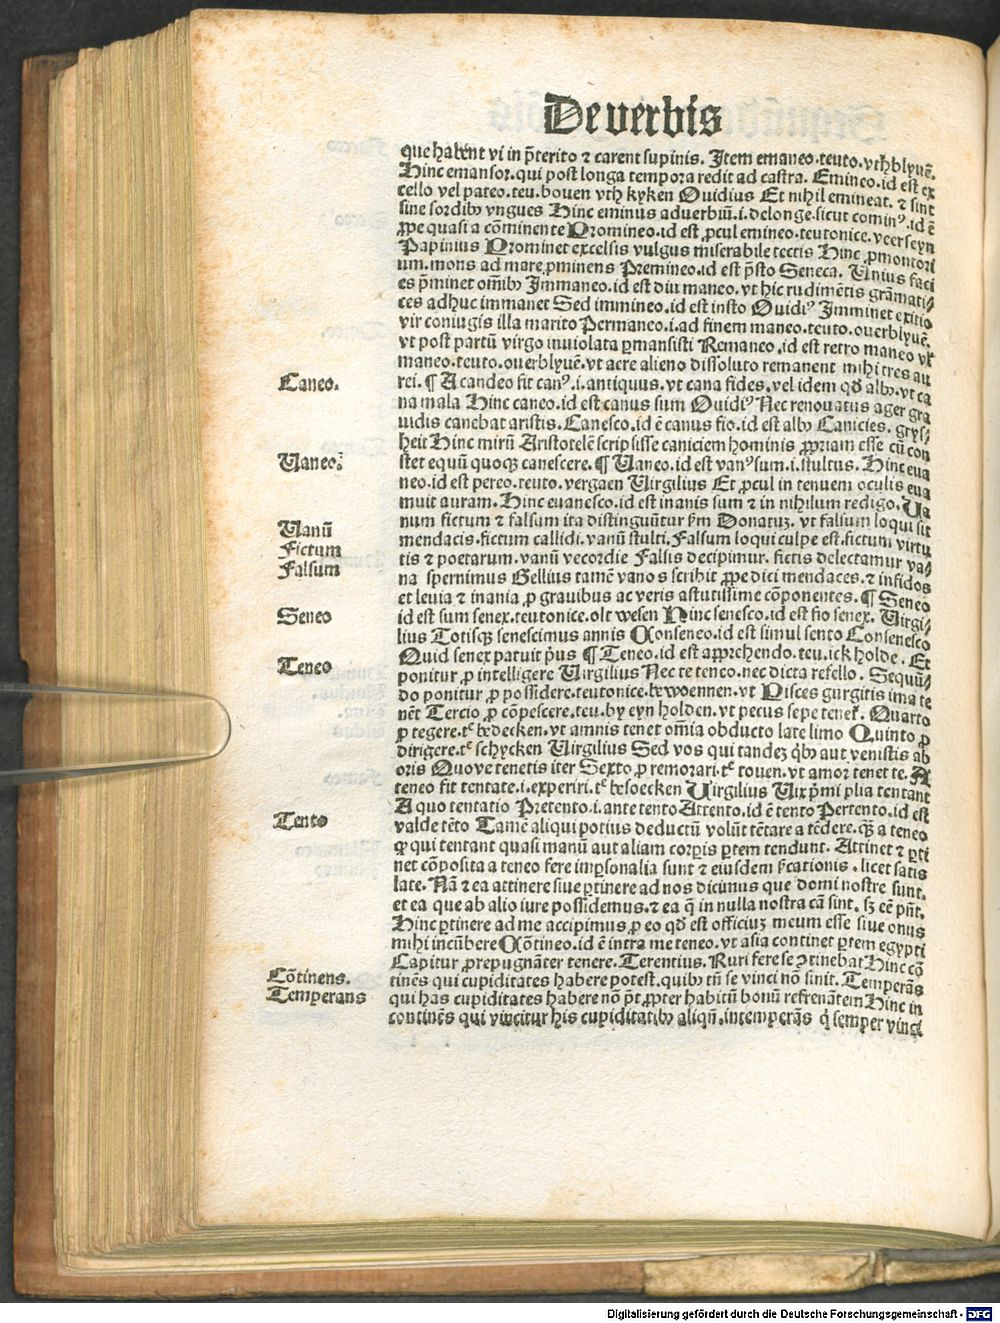 De verbis
que habent vi in p̄terito ⁊ carent supinis. Item emaneo.teuto.vthblyuē.
Hinc emansor.qui post longa tempora redit ad castra. Emineo.id est ex
cello vel pateo.teu.bouen vth kyken Ouidius Et nihil emineat. ⁊ sint
sine sordibꝫ vngues Hinc eminus aduerbiū.i.de longe.sicut cominꝰ.id ē
ꝓpe quasi a cōminente Promineo.id est ꝓcul emineo.teutonice.veerseyn
Papinius Prominet excelsis vulgus miserabile tectis Hinc ꝓmontori
um.mons ad mare ꝓminens Premineo.id est p̄sto Seneca. Unius faci
es p̄minet om̄ibꝫ Immaneo.id est diu maneo. vt hic rudimētis grāmati⸗
ces adhuc immanet Sed immineo.id est insto Ouidiꝰ Imminet exitio
vir coniugis illa marito Permaneo.i.ad finem maneo.teuto.ouerblyuē.
vt post partū virgo inuiolata ꝑmansisti Remaneo.id est retro maneo vł
maneo.teuto.ouerblyuē.vt aere alieno dissoluto remanent mihi tres au
Caneo.
rei. ¶ A candeo fit canꝰ.i.antiquus.vt cana fides.vel idem qd̄ albꝰ.vt ca
na mala Hinc caneo.id est canus sum Ouidiꝰ Nec renouatus ager gra
uidis canebat aristis. Canesco.id ē canus fio.id est albꝫ Canicies. grys⸗
heit Hinc mirū Aristotelē scripsisse caniciem hominis ꝓpriam esse cū con
Uaneo.
stet equū quoqꝫ canescere. ¶ Uaneo.id est vanꝰ sum.i.stultus. Hinc eua
neo.id est pereo.teuto.vergaen Uirgilius Et ꝓcul in tenuem oculis eua
nuit auram. Hinc euanesco.id est inanis sum ⁊ in nihilum redigo. Ua
Uanū
num fictum ⁊ falsum ita distinguūtur ẜm Donatuꝫ. vt falsum loqui sit
Fictum
mendacis.fictum callidi.vanū stulti. Falsum loqui culpe est.fictum virtu
Falsum
tis ⁊ poetarum.vanū vecordie Falsis decipimur. fictis delectamur va⸗
na spernimus Gellius tamē vanos scribit ꝓpe dici mendaces.⁊ infidos
et leuia ⁊ inania ꝓ grauibus ac veris astutissime cōponentes. ¶ Seneo
Seneo
id est sum senex.teutonice.olt wesen Hinc senesco.id est fio senex. Uirgi⸗
lius Totisqꝫ senescimus annis Conseneo.id est simul sento Consenesco
Teneo
Ouid senex patuit p̄us ¶ Teneo.id est apprehendo.teu.ick holde. Et
ponitur ꝓ intelligere Uirgilius Nec te teneo.nec dicta refello. Sequū⸗
do ponitur ꝓ possidere.teutonice.bewoennen.vt Pisces gurgitis ima te
nēt Tercio ꝓ cōpescere.teu.by eyn holden.vt pecus sepe tenet. Quarto
ꝓ tegere.te bedecken.vt amnis tenet om̄ia obducto late limo Quinto ꝓ
dirigere.te schycken Uirgilius Sed vos qui tandeꝫ qbꝫ aut venistis ab
oris Quoue tenetis iter Sexto ꝓ remorari.te touen.vt amor tenet te. A
teneo fit tentate.i.experiri.te besoecken Uirgilius Uix p̄mi plia tentant
A quo tentatio Pretento.i.ante tento Attento.id ē tento Pertento.id est
Tento
valde tēto Tamē aliqui potius deductū volūt tētare a tēdere.qꝫ a teneo
qui tentant quasi manū aut aliam corpis ꝑtem tendunt. Attinet ⁊ ꝑti
net cōposita a teneo fere imꝑsonalia sunt ⁊ eiusdem s̄cationis.licet satis
late. Nā ⁊ ea attinere siue ꝑtinere ad nos dicimus que domi nostre sunt.
et ea que ab alio iure possidemus.⁊ ea q̄ in nulla nostra cā sint. sꝫ eē pn̄t.
Hinc ꝑtinere ad me accipimus ꝓ eo qd̄ est officiuꝫ meum esse siue onus
mihi incūbere Cōtineo.id ē intra me teneo.vt asia continet ꝑtem egypti
Capitur ꝓ repugnāter tenere. Terentius. Ruri fere se ꝯtinebat Hinc cō
Cōtinens.
tinēs qui cupiditates habere potest.quibꝫ tn̄ se vinci nō sinit. Temperās
Temperans
qui has cupiditates habere nō p̄t ꝓpter habitū bonū refrenātem Hinc in
continēs qui vincitur his cupiditatibꝫ aliqn̄.intemperās q̇ semper vinci
Digitalisierung gefördert durch die Deutsche Forschungsgemeinschaft - DFG